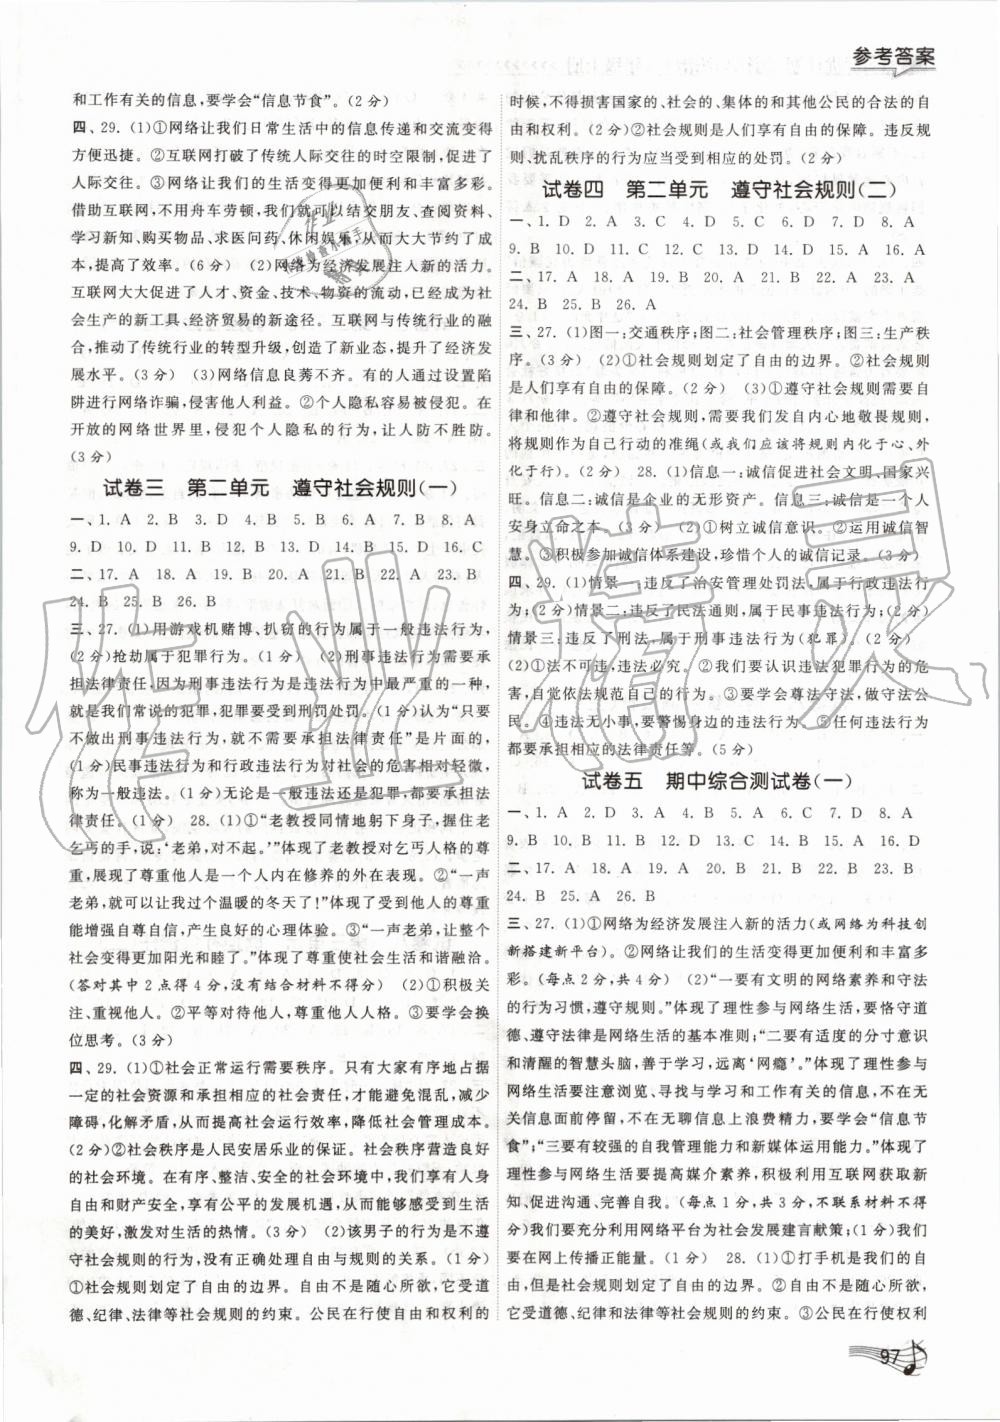 参考答案
和工作有关的信息,要学会“信息节食”。(2 分)
四、29. (1)①网络让我们日常生活中的信息传递和交流变得
方便迅捷。②互联网打破了传统人际交往的时空限制,促进了
人际交往。③网络让我们的生活变得更加便利和丰富多彩。
借助互联网,不用舟车劳顿,我们就可以结交朋友、查阅资料、
学习新知、购买物品、求医问药、休闲娱乐,从而大大节约了成
本,提高了效率。(6 分) (2)网络为经济发展注入新的活力。
互联网大大促进了人才、资金、技术、物资的流动,已经成为社
会生产的新工具、经济贸易的新途径。互联网与传统行业的融
合,推动了传统行业的转型升级,创造了新业态,提升了经济发
展水平。(3 分) (3)网络信息良莠不齐。有的人通过设置陷
阱进行网络诈骗,侵害他人利益。②个人隐私容易被侵犯。在
开放的网络世界里,侵犯个人隐私的行为,让人防不胜防。
(3 分)
试卷三 第二单元 遵守社会规则(一)
一、1. A 2. B 3. D 4. B 5. B 6. A 7. B 8. A
9. D 10. D 11. B 12. B 13. B 14. D 15. D 16. C
二、17. A 18. A 19. A 20. A 21. B 22. A 23. B
24. B 25. B 26. B
三、27. (1)用游戏机赌博、扒窃的行为属于一般违法行为,
(2 分)抢劫属于犯罪行为。(1 分) (2)刑事违法行为需要承
担法律责任,因为刑事违法行为是违法行为中最严重的一种,
就是我们常说的犯罪,犯罪要受到刑罚处罚。(1 分)认为“只要
不做出刑事违法行为,就不需要承担法律责任”是片面的,
(1 分)民事违法行为和行政违法行为对社会的危害相对轻微,
称为一般违法。(1 分)无论是一般违法还是犯罪都要承担法
律责任。(1 分) 28. (1)①“老教授同情地躬下身子,握住老
乞丐的手,说:‘老弟,对不起。’”体现了老教授对乞丐人格的尊
重,展现了尊重他人是一个人内在修养的外在表现。②“一声
老弟,就已让我过上温暖的冬天了!”体现了得到他人的尊重
能增强自尊自信,产生良好的心理体验。③“一声老弟,让整个
社会变得更加阳光和睦了。”体现了尊重使社会生活和谐融洽。
(答对其中 2 点得 4 分,没有结合材料不得分) (2)①积极关
注、重视他人。②平等对待他人,尊重他人人格。③要学会换
位思考。(3 分)
四、29. (1)①社会正常运行需要秩序。只有大家有序地占据
一定的社会资源和承担相应的社会责任,才能避免混乱,减少
障碍,化解矛盾,从而提高社会运行效率,降低社会管理成本。
(2 分)②社会秩序是人民安居乐业的保证。社会秩序营造良好
的社会环境。在有序、整洁、安全的社会环境中,我们享有人身
自由和财产安全,享有公平的发展机遇,从而能感受到生活
的美好,激发对生活的热情。(3 分) (2)该男子的行为是不遵
守社会规则的行为,没有正确处理自由与规则的关系。(1 分)
①社会规则划定了自由的边界。自由不是随心所欲,它受道
德、纪律、法律等社会规则的约束。公民在行使自由和权利的
时候,不得损害国家的、社会的、集体的和其他公民的合法的自
由和权利。(2 分)②社会规则是人们享有自由的保障。违反规
则、扰乱秩序的行为应当受到相应的处罚。(2 分)
试卷四 第二单元 遵守社会规则(二)
一、1. D 2. A 3. C 4. D 5. C 6. D 7. D 8. A
9. B 10. D 11. C 12. D 13. C 14. A 15. A 16. A
二、17. A 18. A 19. B 20. A 21. A 22. A 23. A
24. B 25. B 26. A
三、27. (1)图一:交通秩序;图二:社会管理秩序;图三:生产秩
序。(3 分) (2)①社会规则划定了自由的边界。②社会规则
是人们享有自由的保障。(2 分) (3)①遵守社会规则需要自
律和他律。②遵守社会规则,需要我们发自内心地敬畏规则,
将规则作为自己行动的准绳(或我们应该将规则内化于心、外
化于行)。(2 分) 28. (1)信息一:诚信促进社会文明、国家兴
旺。信息二:诚信是企业的无形资产。信息三:诚信是一个人
安身立命之本。(3 分) (2)①树立诚信意识。②运用诚信智
慧。③积极参加诚信体系建设,珍惜个人的诚信记录。(3 分)
四、29. (1)情景一:违反了治安管理处罚法,属于行政违法行
为;(2 分)情景二:违反了民法通则,属于民事违法行为;(2 分)
情景三:违反了刑法,属于刑事违法行为(犯罪)。(2 分)
(2)①法不可违,违法必究。②我们要认识违法犯罪行为的危
害,自觉依法规范自己的行为。③要学会尊法守法,做守法公
民。④违法无小事,要警惕身边的违法行为。⑤任何违法行为
都要承担相应的法律责任等。(5 分)
试卷五 期中综合测试卷(一)
一、1. A 2. D 3. D 4. A 5. A 6. C 7. D 8. A
9. B 10. B 11. A 12. D 13. B 14. A 15. A 16. D
二、17. A 18. A 19. A 20. A 21. B 22. B 23. B
24. B 25. A 26. B
三、27. (1)①网络为经济发展注入新的活力(或网络为科技创
新搭建新平台)。②网络让我们的生活变得更加便利和丰富多
彩。(每点 2 分,共 4 分) (2)“一要有文明的网络素养和守法
的行为习惯,遵守规则。”体现了理性参与网络生活,要恪守道
德、遵守法律是网络生活的基本准则;“二要有适度的分寸意识
和清醒的智慧头脑,善于学习,远离‘网瘾’。”体现了理性参与
网络生活要注意浏览、寻找与学习和工作有关的信息,不在无
关信息面前停留,不在无聊信息上浪费精力,要学会“信息节
食”;“三要有较强的自我管理能力和新媒体运用能力。”体现了
理性参与网络生活要提高媒介素养,积极利用互联网获取新
知、促进沟通、完善自我。(每点 1 分,共 3 分,不联系材料不得
分)我们要充分利用网络平台为社会发展建言献策;(1 分)我们
要在网上传播正能量。(1 分) 28. (1)①打手机是我们的自
由,但是社会规则划定了自由的边界。②自由不是随心所欲,
它受道德、纪律和法律等社会规则的约束。③公民在行使权利
97
作业精灵